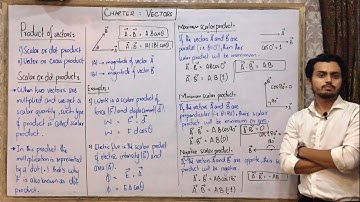 CHAPTER: VECTORS
Product of vectors
1) Scalar or dot product
2) Vector or cross product
Scalar or dot product:
When two vectors are
multiplied and we get a
scalar quantity, such type
of product is called scalar
product.
In this product the
multiplication is represented
by a dot (.) that's why
it is also known as dot
product.
A⃗ . B⃗ = AB cosθ
A⃗ . B⃗ = |A||B| cosθ
|A| → magnitude of vector A⃗
|B| → magnitude of vector B⃗
Examples:
1) Work is a scalar product of
force (F⃗) and displacement (d⃗).
W = F⃗ . d⃗
W = F d cosθ
2) Electric flux is the scalar product
of electric intensity (E⃗) and
area (A⃗).
Φ = E⃗ . A⃗
Φ = EA cosθ
Maximum scalar product:
If the vectors A⃗ and B⃗ are
parallel (θ=0°), then
scalar product will be maximum
A⃗ . B⃗ = AB cos0°
A⃗ . B⃗ = AB (1)
cos0° = 1
A⃗ . B⃗ = AB
Minimum scalar product:
If vectors A⃗ and B⃗ are
perpendicular
product will be minimum
A⃗ . B⃗ = AB cos90°
A⃗ . B⃗ = 0
Negative scalar product:
If the vectors A⃗ and B⃗ are opposite, then
product will be negative
A⃗ . B⃗ = AB cos180°
A⃗ . B⃗ = -AB